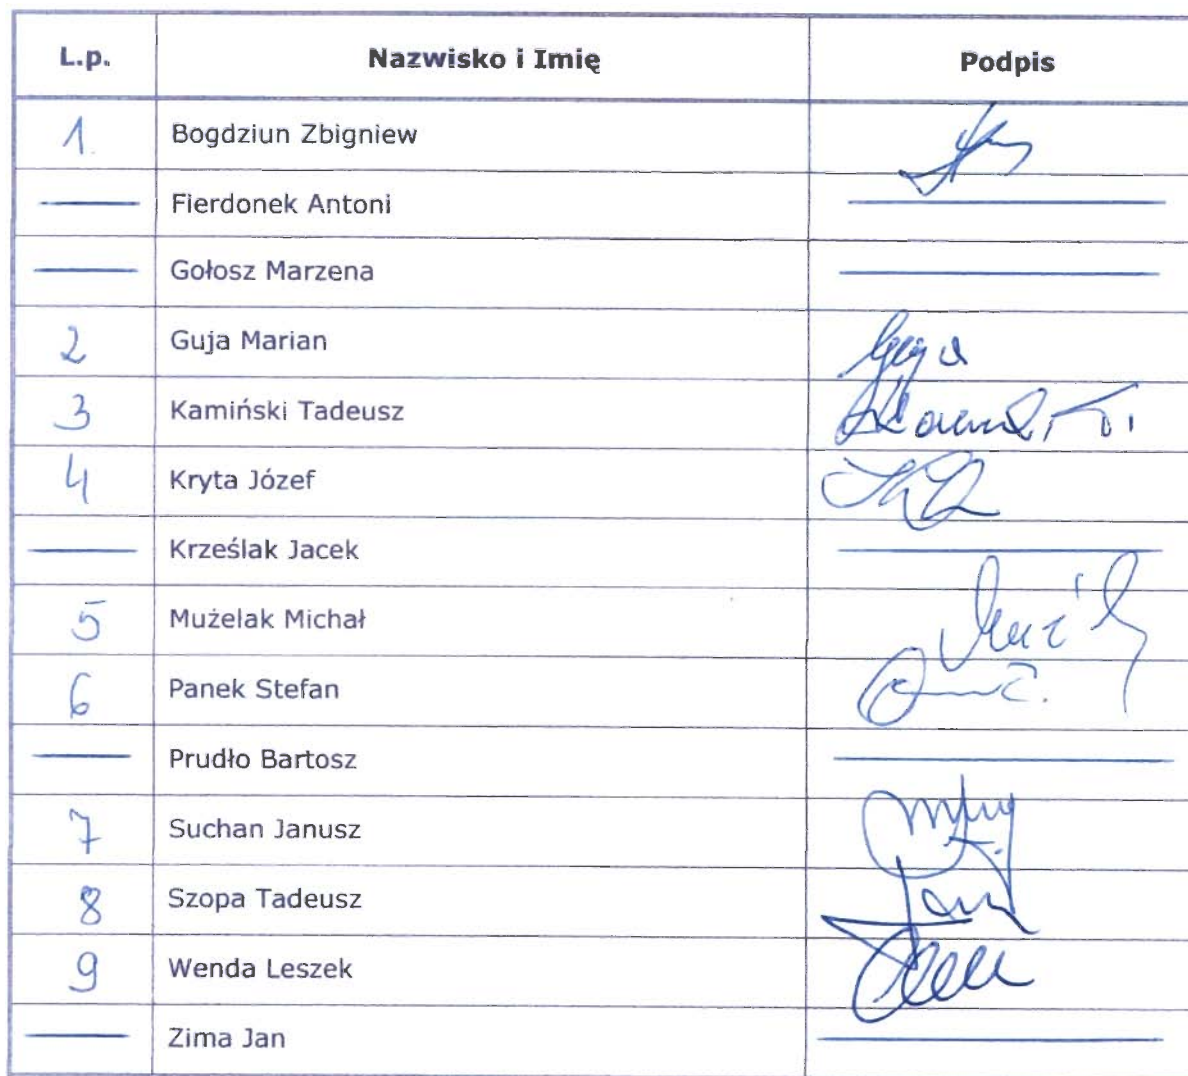 L.p. Nazwisko i Imię Podpis
1. Bogdziun Zbigniew
Fierdonek Antoni
Gołosz Marzena
2 Guja Marian
3 Kamiński Tadeusz
4 Kryta Józef
Krześlak Jacek
5 Mużelak Michał
6 Panek Stefan
Prudło Bartosz
7 Suchan Janusz
8 Szopa Tadeusz
9 Wenda Leszek
Zima Jan